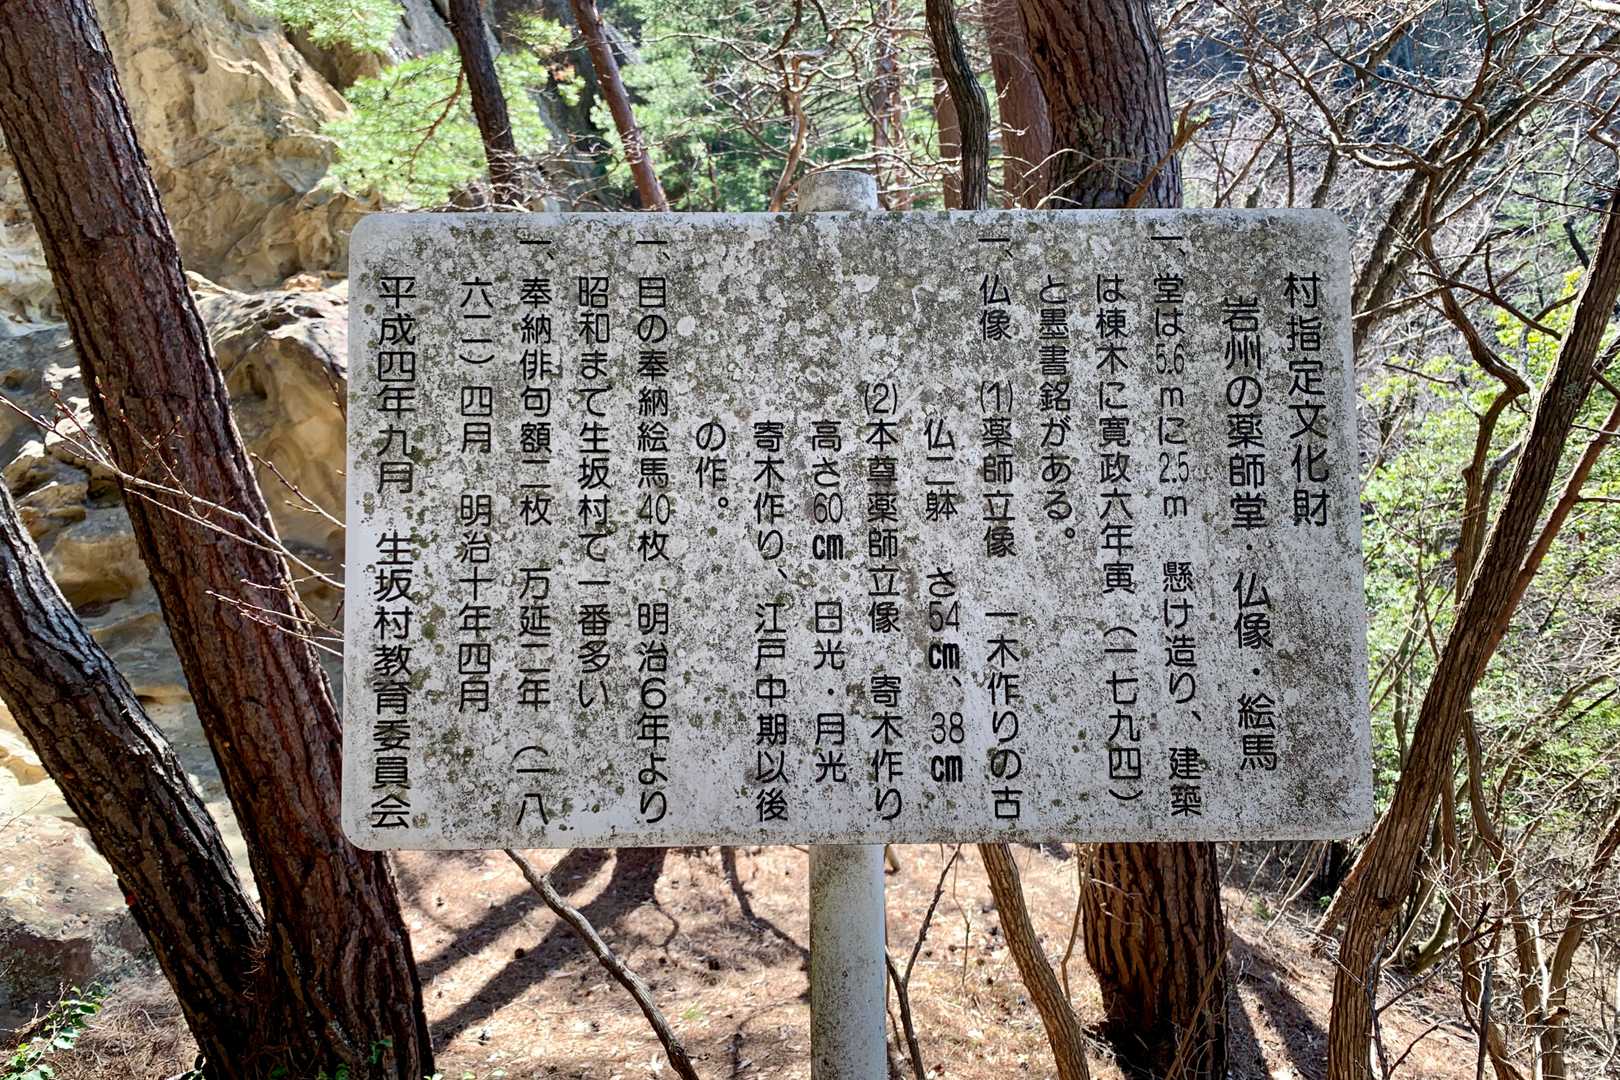 村指定文化財
岩州の薬師堂・仏像・絵馬
一、堂は5.6mに2.5m 懸け造り、建築
は棟木に寛政六年寅(一七九四)
と墨書銘がある。
一、仏像 (1)薬師立像 一木作りの古
仏二躰 さ54㎝、38㎝
(2)本尊薬師立像 寄木作り
高さ60㎝ 日光・月光
寄木作り、江戸中期以後
の作。
一、目の奉納絵馬40枚 明治6年より
昭和まて生坂村て一番多い
一、奉納俳句額二枚 万延二年 (一八
六二)四月 明治十年四月
平成四年九月 生坂村教育委員会